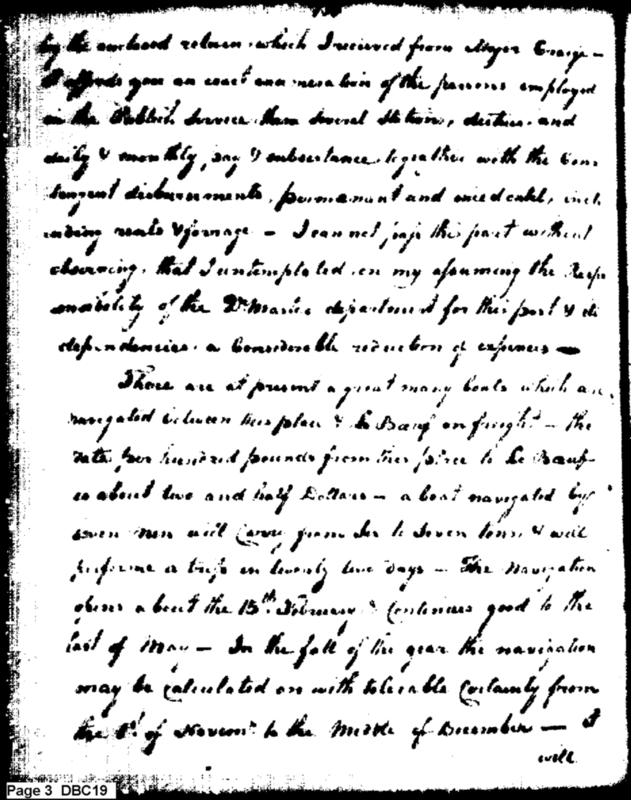 by the enclosed return which I recieved from Major Craige —
It affords you an exact enumeration of the persons employed
in the Publick Service, them several Stations, duties, and
daily & monthly, pay & subsistance, together with the Con
tingent disbursements, permanant and incidental, incl
uding rents & forrage — I cannot pass this part without
observing, that I contemplated, on my assuming the Resp
onsibility of the Qr Master department for this post & its
dependencies, a Considerable reduction of expences —
There are at present a great many boats which are
navigated between this place & Le Bœuf on freight — the
rate per hundred pounds from this place to Le Bœuf
is about two and half Dollars — a boat navigated by
seven men will Carry from Six to Seven tons, & will
performe a trip in twenty two days — The Navigation
opens about the 15th February & Continues good to the
last of May — In the fall of the year the navigation
may be Calculated on with tolerable Certainty from
the of Novemr to the Middle of December — I
will
Page 3 DBC19